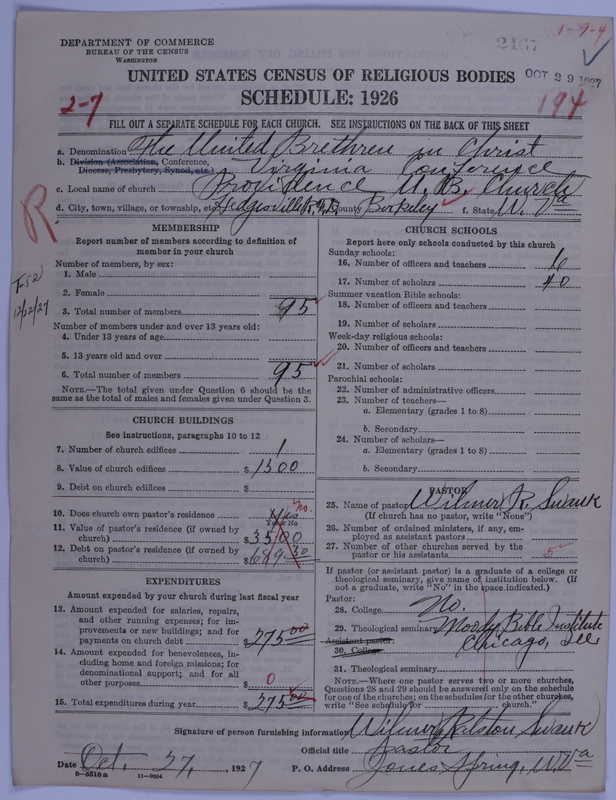 1-9-4
2137
DEPARTMENT OF COMMERCE
BUREAU OF THE CENSUS
WASHINGTON
OCT 29 1927
UNITED STATES CENSUS OF RELIGIOUS BODIES
SCHEDULE: 1926
2-7
194
FILL OUT A SEPARATE SCHEDULE FOR EACH CHURCH. SEE INSTRUCTIONS ON THE BACK OF THIS SHEET
a. Denomination The United Brethren in Christ
b. Division (Association, Conference, Diocese, Presbytery, Synod, etc.) Virginia Conference
c. Local name of church Providence U. B. Church
d. City, town, village, or township, etc. Hedgesville R. County Berkeley f. State W. Va
R
T-52
12/22/27
MEMBERSHIP
Report number of members according to definition of
member in your church
Number of members, by sex:
1. Male
2. Female
3. Total number of members 95
Number of members under and over 13 years old:
4. Under 13 years of age
5. 13 years old and over
6. Total number of members 95
NOTE.—The total given under Question 6 should be the
same as the total of males and females given under Question 3.
CHURCH BUILDINGS
See instructions, paragraphs 10 to 12
7. Number of church edifices 1
8. Value of church edifices $1500
9. Debt on church edifices $
10. Does church own pastor's residence? Yes No.
Yes or No
11. Value of pastor's residence (if owned by
church) $3500
12. Debt on pastor's residence (if owned by
church) $689.30
EXPENDITURES
Amount expended by your church during last fiscal year
13. Amount expended for salaries, repairs,
and other running expenses; for im-
provements or new buildings; and for
payments on church debt $275.00
14. Amount expended for benevolences, in-
cluding home and foreign missions; for
denominational support; and for all
other purposes $ 0
15. Total expenditures during year $275.00
CHURCH SCHOOLS
Report here only schools conducted by this church
Sunday schools:
16. Number of officers and teachers 6
17. Number of scholars 40
Summer vacation Bible schools:
18. Number of officers and teachers
19. Number of scholars
Week-day religious schools:
20. Number of officers and teachers
21. Number of scholars
Parochial schools:
22. Number of administrative officers
23. Number of teachers—
a. Elementary (grades 1 to 8)
b. Secondary
24. Number of scholars—
a. Elementary (grades 1 to 8)
b. Secondary
PASTOR
25. Name of pastor Wilmer R. Swank
(If church has no pastor, write "None")
26. Number of ordained ministers, if any, em-
ployed as assistant pastors
27. Number of other churches served by the
pastor or his assistants 5
If pastor (or assistant pastor) is a graduate of a college or
theological seminary, give name of institution below. (If
not a graduate, write "No" in the space indicated.)
Pastor:
28. College No.
29. Theological seminary Moody Bible Institute
Chicago, Ill
Assistant pastor:
30. College
31. Theological seminary
NOTE.—Where one pastor serves two or more churches,
Questions 28 and 29 should be answered only on the schedule
for one of the churches; on the schedules for the other churches,
write "See schedule for church."
Signature of person furnishing information Wilmer Ralston Swank
Official title Pastor
Date Oct. 27, 1927
P. O. Address Jones Spring, W. Va
8-5518a 11-9054